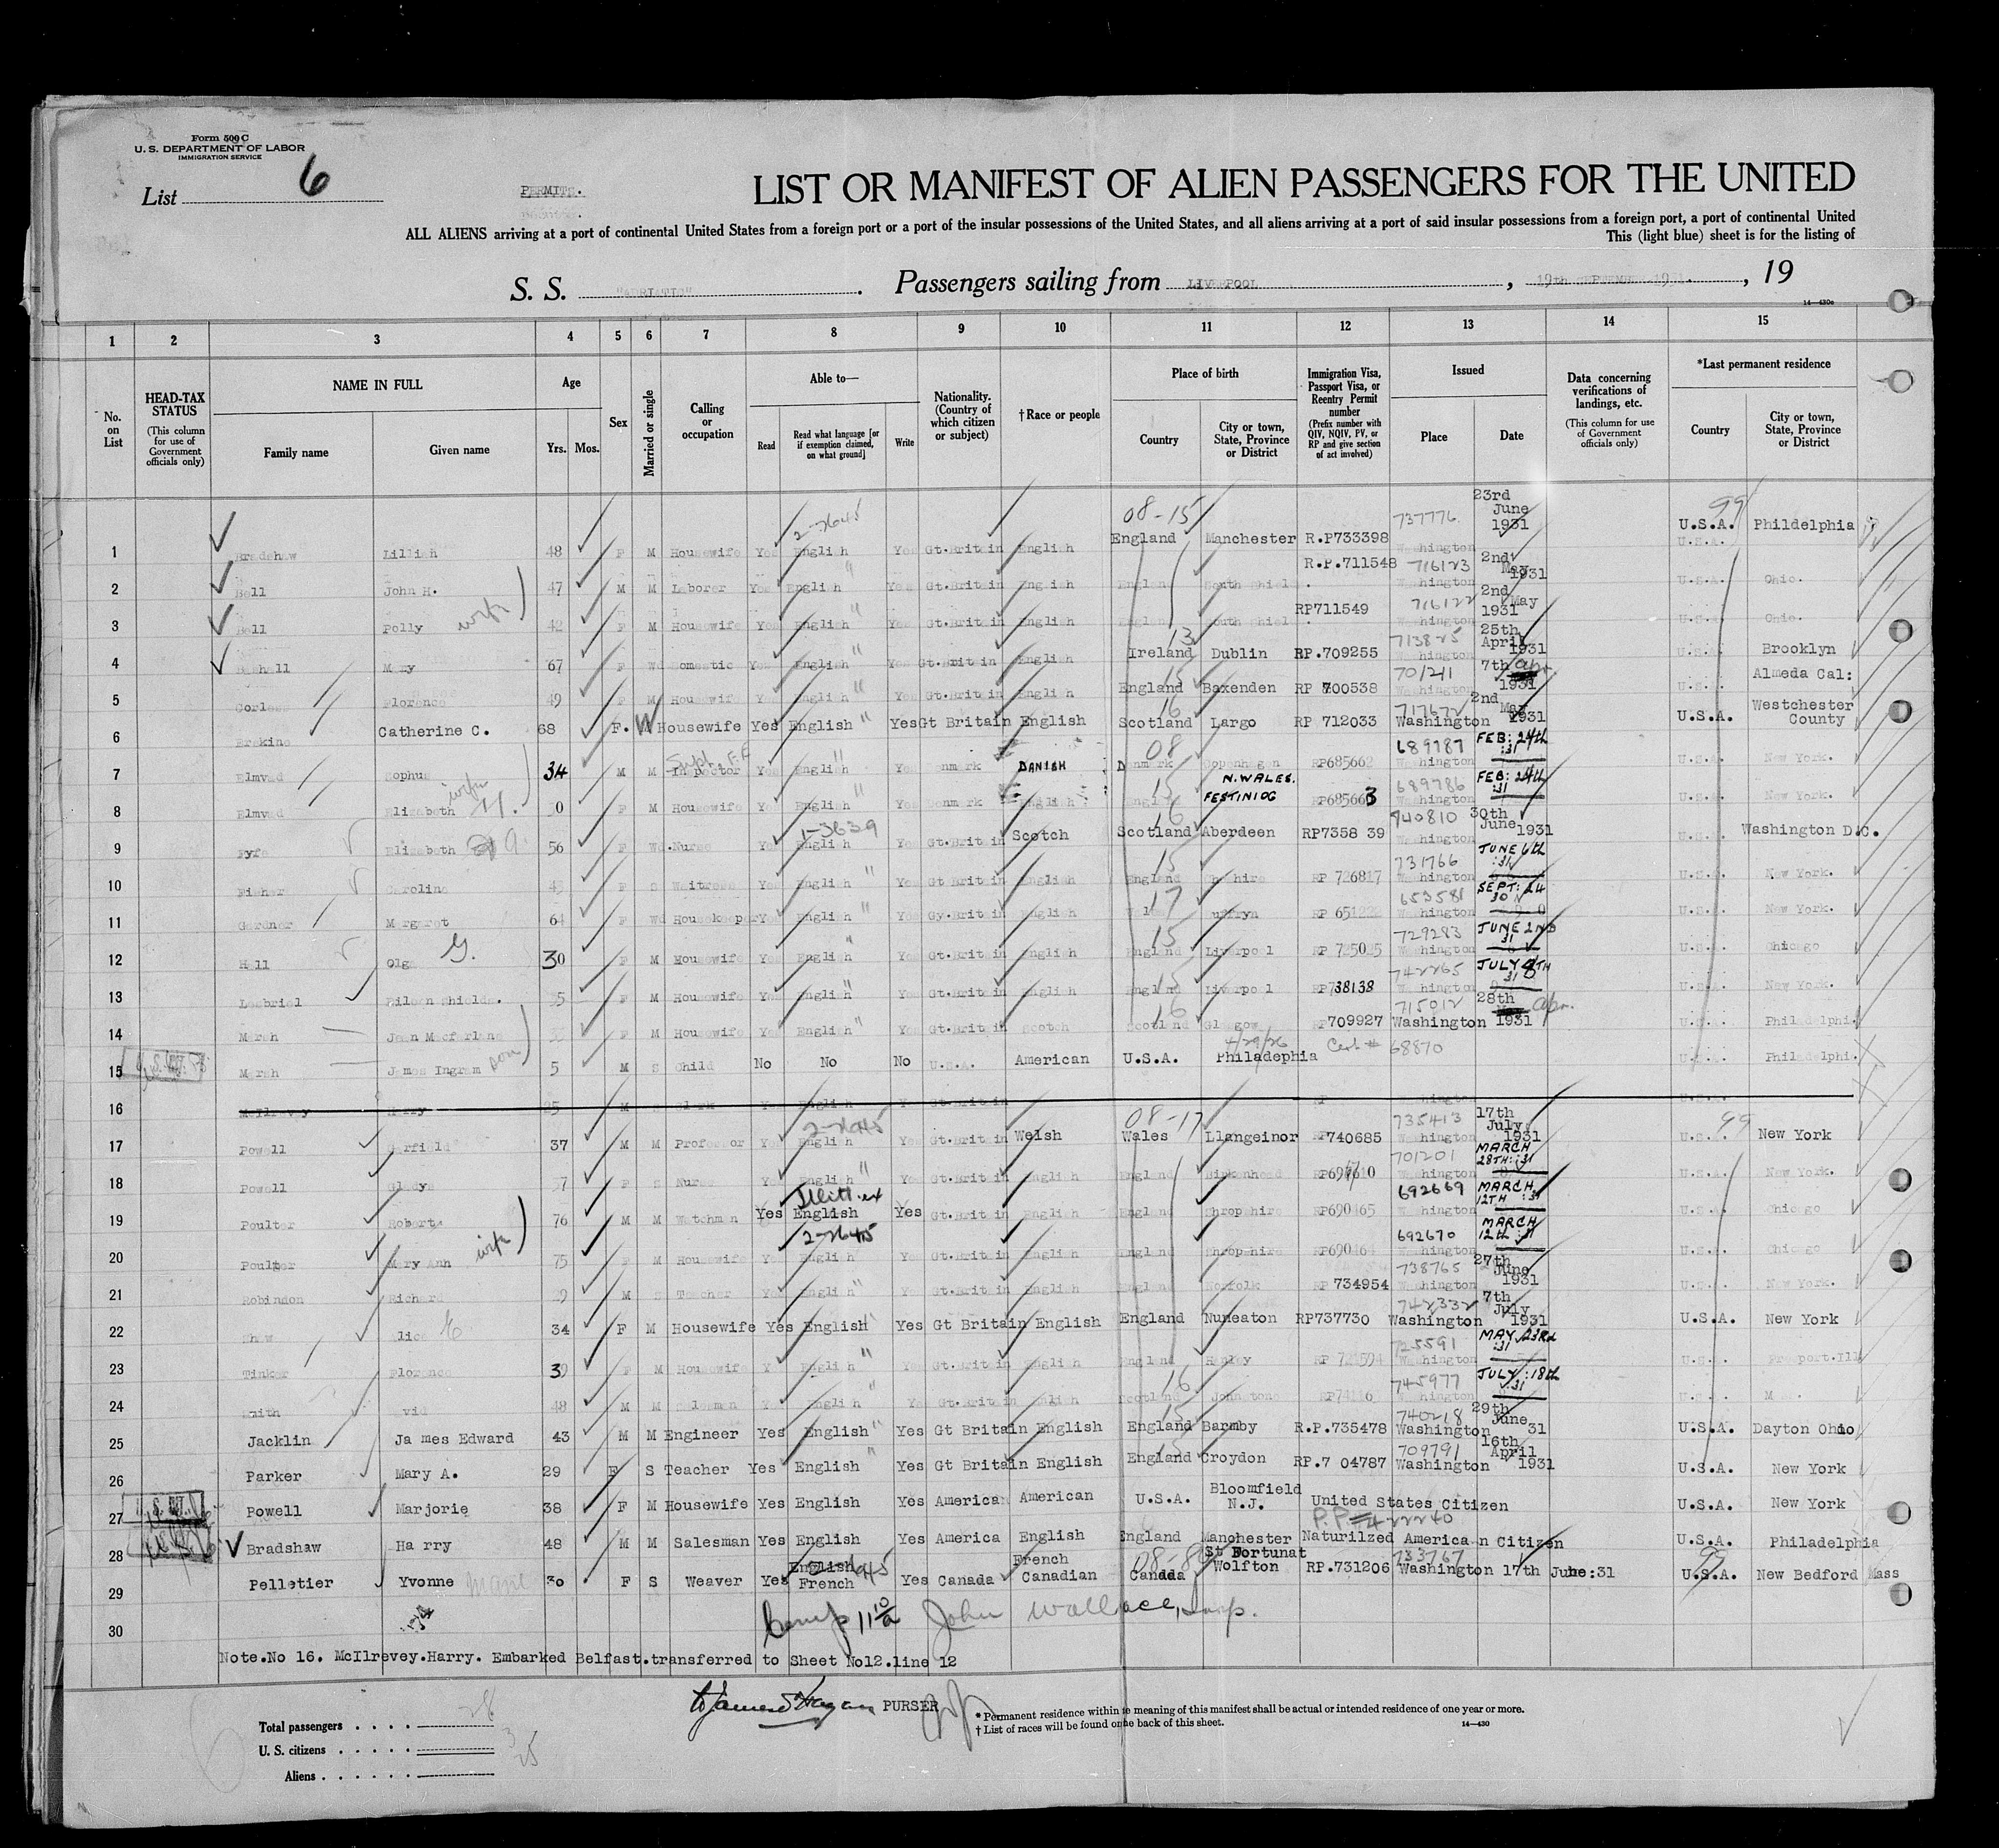 Form 500 C
U. S. DEPARTMENT OF LABOR
IMMIGRATION SERVICE
List 6
PERMITS.
LIST OR MANIFEST OF ALIEN PASSENGERS FOR THE UNITED
ALL ALIENS arriving at a port of continental United States from a foreign port or a port of the insular possessions of the United States, and all aliens arriving at a port of said insular possessions from a foreign port, a port of continental United
This (light blue) sheet is for the listing of
S. S. "ADRIATIC". Passengers sailing from LIVERPOOL, 19th SEPTEMBER 1931., 19
14—430c
1 2 3 4 5 6 7 8 9 10 11 12 13 14 15
No. on List
HEAD-TAX STATUS (This column for use of Government officials only)
NAME IN FULL
Family name Given name
Age
Yrs. Mos.
Sex
Married or single
Calling or occupation
Able to—
Read Read what language [or if exemption claimed, on what ground] Write
Nationality. (Country of which citizen or subject)
†Race or people
Place of birth
Country City or town, State, Province or District
Immigration Visa, Passport Visa, or Reentry Permit number (Prefix number with QIV, NQIV, PV, or RP and give section of act involved)
Issued
Place Date
Data concerning verifications of landings, etc. (This column for use of Government officials only)
*Last permanent residence
Country City or town, State, Province or District
1 Bradshaw Lillian 48 F M Housewife Yes English 2-2645 Yes Gt.Britain English 08-15 England Manchester R.P733398 737776 Washington 23rd June 1931 99 U.S.A. Phildelphia
2 Bell John H. 47 M M Laborer Yes English " Yes Gt.Britain English England South Shiel R.P.711548 716123 Washington 2nd May 1931 U.S.A. Ohio.
3 Bell Polly wife 42 F M Housewife Yes English " Yes Gt.Britain English England South Shiel RP711549 716122 Washington 2nd May 1931 U.S.A. Ohio.
4 Mary 67 F Wd Domestic Yes English " Yes Gt.Britain English 13 Ireland Dublin RP.709255 713825 Washington 25th April 1931 U.S.A. Brooklyn
5 Corless Florence 49 F M Housewife Yes English " Yes Gt.Britain English 15 England Baxenden RP 700538 701241 Washington 7th Apr. 1931 U.S.A. Almeda Cal:
6 Erskine Catherine C. 68 F. W Housewife Yes English " Yes Gt Britain English 16 Scotland Largo RP 712033 717672 Washington 2nd May 1931 U.S.A. Westchester County
7 Elmvad Sophus 34 M M Inspector Yes English " Yes Denmark DANISH 08 Denmark Copenhagen RP685662 689787 Washington FEB: 24th :31 U.S.A. New York.
8 Elmvad Elizabeth H. wife 30 F M Housewife Yes English " Yes Denmark English 15 England N.WALES. FESTINIOG RP685663 689786 Washington FEB: 24th :31 U.S.A. New York.
9 Fyfe Elizabeth 56 F Wd Nurse Yes English 1-3639 Yes Gt.Britain Scotch 16 Scotland Aberdeen RP7358 39 740810 30th June 1931 U.S.A. Washington D.C.
10 Fisher Caroline F S Waitress Yes English " Yes Gt Britain English 15 England Cheshire RP 726817 731766 Washington JUNE 6th :31 U.S.A. New York.
11 Gardner Margaret 64 F Wd Housekeeper Yes English " Yes Gy.Britain English 17 Wales RP 651222 653581 Washington SEPT: 24 30 U.S.A. New York.
12 Hall Olga G. 30 F M Housewife Yes English " Yes Gt.Britain English 15 England Liverpool RP 725025 729283 Washington JUNE 2ND 31 U.S.A. Chicago
13 Eileen Shields. 35 F M Housewife Yes English " Yes Gt.Britain English 15 England Liverpool RP738138 742265 Washington JULY 8TH 31 U.S.A. New York.
14 Marsh Jean Macfarland F M Housewife Yes English " Yes Gt.Britain Scotch 16 Scotland Glasgow RP709927 715012 Washington 28th Apr. 1931 U.S.A. Philadelphi.
15 Marsh James Ingram son 5 M S Child No No No U.S.A. American U.S.A. 4/29/26 Philadephia Cert # 68870 U.S.A. Philadelphi.
16 McIlrevey Harry 25 M S Clerk Yes English Yes Gt.Britain RP Washington U.S.A.
17 Powell Garfield 37 M M Professor Yes English 2-2645 Yes Gt.Britain Welsh 08-17 Wales Llangeinor RP740685 735413 Washington 17th July 1931 99 U.S.A. New York
18 Powell Gladys F S Nurse Yes English " Yes Gt.Britain English England Birkenhead RP697610 701201 Washington MARCH 28TH:31 U.S.A. New York.
19 Poulter Roberts 76 M M Watchman Yes English Yes Gt.Britain English England Shropshire RP690465 692669 Washington MARCH 12TH :31 U.S.A. Chicago
20 Poulter Mary Ann wife 75 F M Housewife Yes English 2-2645 Yes Gt.Britain English England Shropshire RP690464 692670 Washington MARCH 12th :31 U.S.A. Chicago
21 Robinson Richard M S Teacher Yes English " Yes Gt.Britain English England Norfolk RP 734954 738765 Washington 27th June 1931 U.S.A. New York.
22 Shaw Alice E. 34 F M Housewife Yes English " Yes Gt Britain English England Nuneaton RP737730 742332 Washington 7th July 1931 U.S.A. New York
23 Tinker Florence 39 F M Housewife Yes English " Yes Gt.Britain English England Hanley RP 721594 725591 Washington MAY 23Rd :31 U.S.A. Freeport.Ill
24 Smith David 48 M M Salesman Yes English " Yes Gt.Britain English 16 Scotland Johnstone 745977 Washington JULY :18th :31 U.S.A.
25 Jacklin Ja mes Edward 43 M M Engineer Yes English " Yes Gt Britain English 15 England Barmby R.P.735478 740218 Washington 29th June 31 U.S.A. Dayton Ohio
26 Parker Mary A. 29 F S Teacher Yes English " Yes Gt Britain English 15 England Croydon RP.7 04787 709791 Washington 16th April 1931 U.S.A. New York
27 Powell Marjorie 38 F M Housewife Yes English Yes America American U.S.A. Bloomfield N.J. United States Citizen U.S.A. New York
P.P.=422240
28 Bradshaw Ha rry 48 M M Salesman Yes English Yes America English England Manchester Naturilzed America n Citizen U.S.A. Philadelphia
29 Pelletier Yvonne Marie 30 F S Weaver Yes English French Yes Canada French Canadian 08-8 Canada St Fortunat Wolfton RP.731206 733767 Washington 17th June:31 99 U.S.A. New Bedford Mass
30 John Wallace, Insp.
Note.No 16. McIlrevey.Harry. Embarked Belfast.transferred to Sheet No12.line 12
PURSER
* Permanent residence within the meaning of this manifest shall be actual or intended residence of one year or more.
† List of races will be found on the back of this sheet.
14—430
Total passengers . . . . 28
U. S. citizens . . . . . 3
Aliens . . . . . . 25